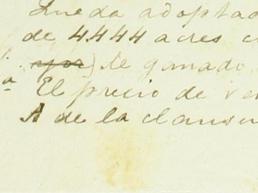 Queda adoptad
de 4444 acres c
yor) de ganado.
a El precio de ve
A de la clausu